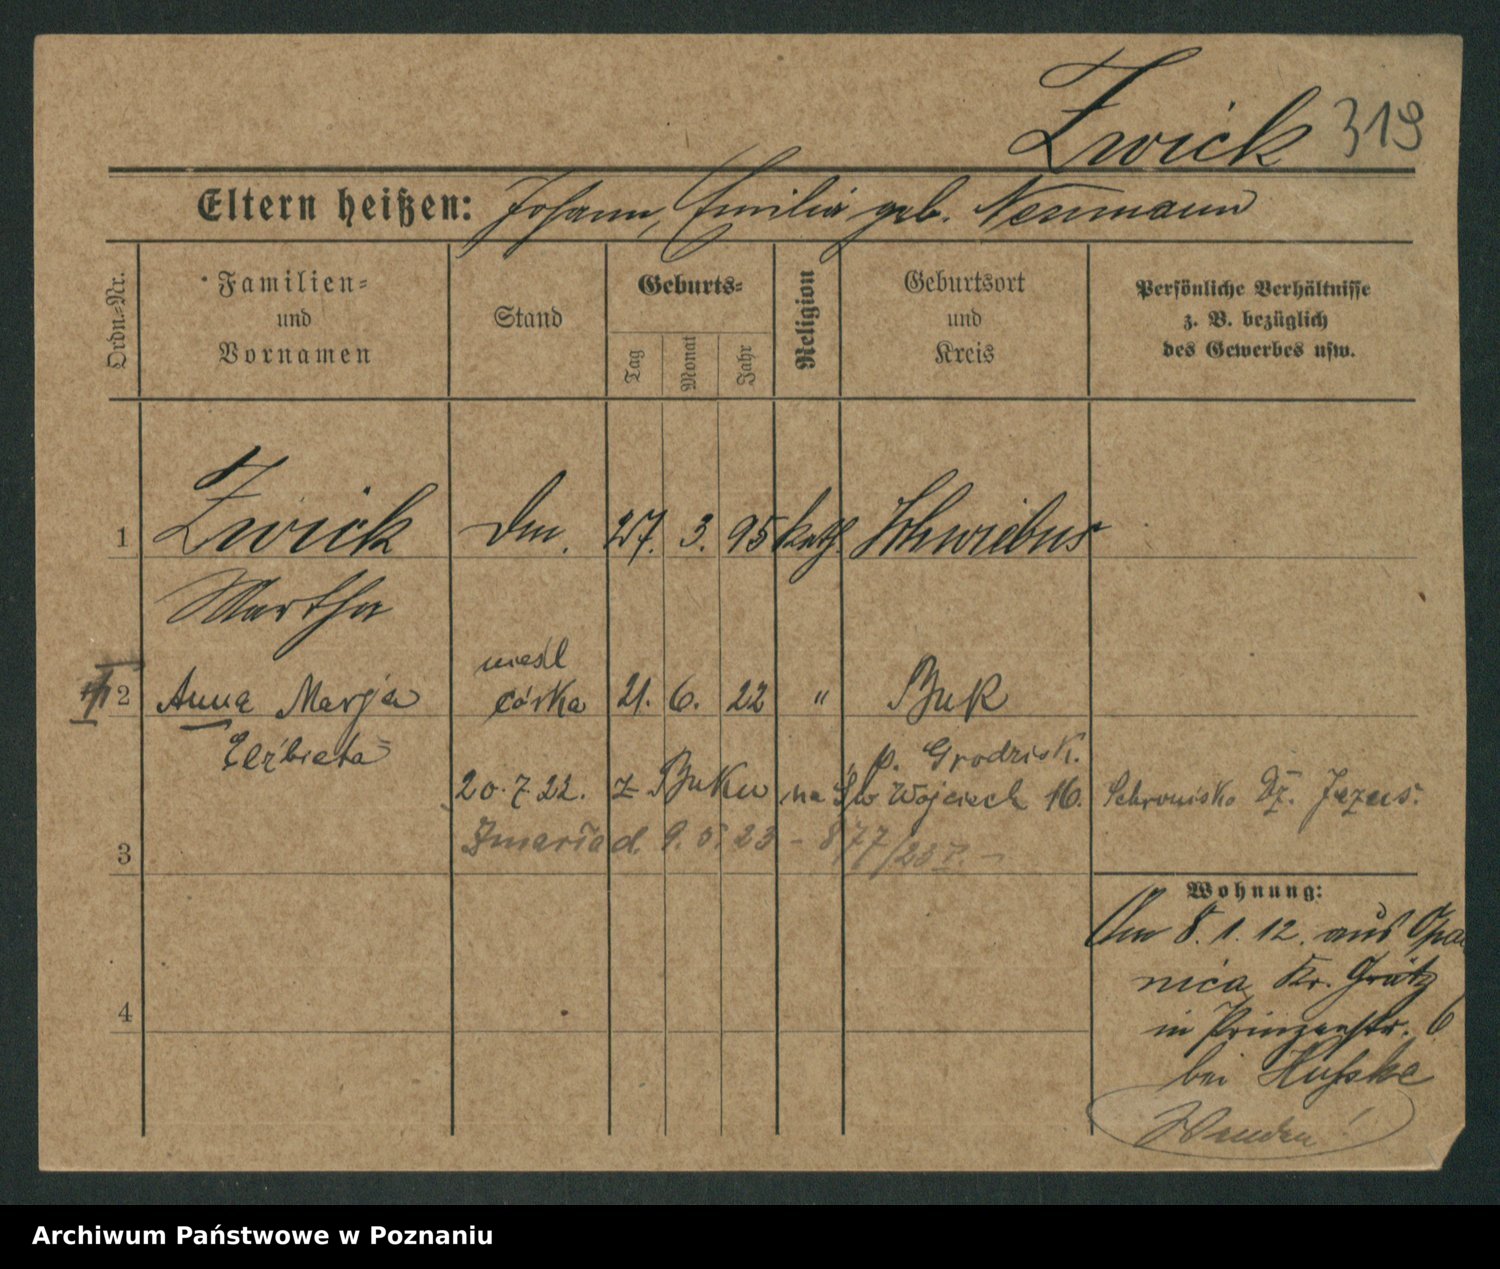 Zwick 319
Eltern heißen: Johann, Emilia geb. Neumann
Ordn.-Nr.
Familien-
und
Vornamen
Stand
Geburts-
Tag
Monat
Jahr
Religion
Geburtsort
und
Kreis
Persönliche Verhältnisse
z. B. bezüglich
des Gewerbes usw.
1 Zwick 27. 3. 95 kath. Schwiebus
Martha
nieśl
2 Anna Marja córka 21. 6. 22 " Buk
Elżbieta p. Grodzisk.
20.7.22. z Buku na Św Wojciech 16. Schronisko Dz. Jezus.
3 Zmarła d. 9. 5. 23 - 877/23 r. -
Wohnung:
Am 8. 1. 12. aus Opa
nica Kr. Grätz
4 in Prinzenstr. 6
bei
Wenden!
Archiwum Państwowe w Poznaniu